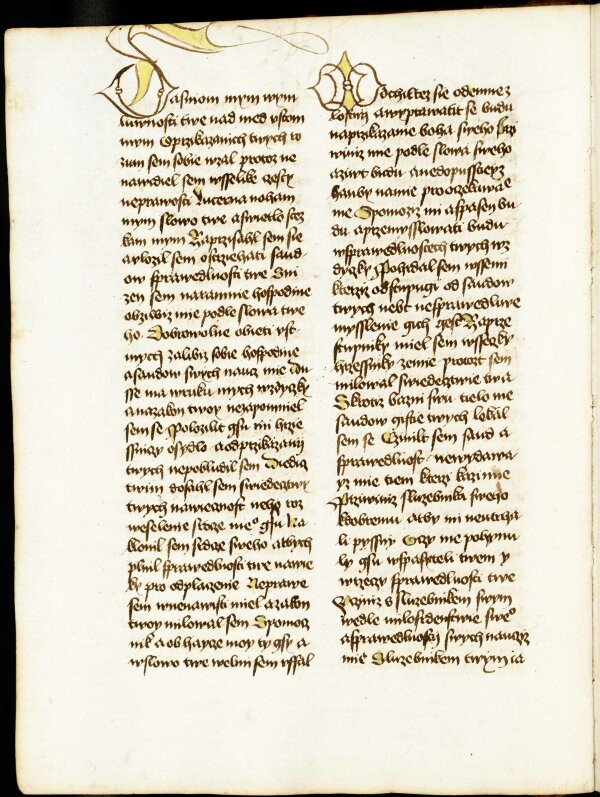 Dasniom mym wym
luwnosti twe nad med vstom
mym Oprzikazanich twych ro
zum sem sobie wzal protoz ne
nawidiel sem wsselike czesty
neprawosti Lucerna noham
mym slowo twe aswietlo stez
kam mym Zaprzisahl sem sie
avlozil sem ostrziehati saud
ow sprawedlnosti twe Sni
zen sem naramnie hospodine
obziwiz mie podle slowa twe
ho Dobrowolne obieti vst
mych zalibiz sobie hospodine
asaudom swych naucz mie Du
sse ma wruku mych wzdyczky
anazakon twoy nezapomniel
sem se Polozili gsu mi hrzie
ssniczy osydlo aodprzikazani
twych nepobludil sem Diedicz
twim dosahl sem swiedectwy
twych nawiecznost nebo roz
weselenie srdcze me° gsu Na
klonil sem srdcze sweho abych
plnil sprawedlnosti twe nawie
ky pro odplaczenie Neprawe
sem wnenawisti miel azakon
twoy milowal sem Spomocz
nik aobhaycze moy ty gsy a
wslowo twe welmi sem vssal
Odchiltez sie odemne z
lostny awyptawati se budu
naprzikazanie boha sweho Przi
winiz mie podle slowa sweho
aziw budu anedopusstiey z
hanby namie proocziekawa
nie Spomoz mi aspasen bu
du aprzemysslowati budu
wsprawedlnostech twych wz
dyczky Pohrdal sem wssemi
kterziz odstupugi od saudow
twych nebt nesprawedliwe
mysslenie gich gest Zaprze
stupniky miel sem wsseczky
hrziessniky zemie protozt sem
milowal swiedectwie twa
Skrotz bazni swu tielo me
saudow gistie twych lekal
sem se Czinil sem saud a
sprawedlnost newydawa
yz mie tiem kterzi kazi mie
Prziwiniz sluzebnika sweho
kdobremu aby mi neutrha
li pyssni Oczy me pohynu
ly gsu wspaseteli twem y
wrzeczy sprawedlnosti twe
Vcziniz s sluzebnikem swym
wedle milosidenstwie swe°
asprawedlnosti swych nauczyz
mie Sluzebnikem twym ia